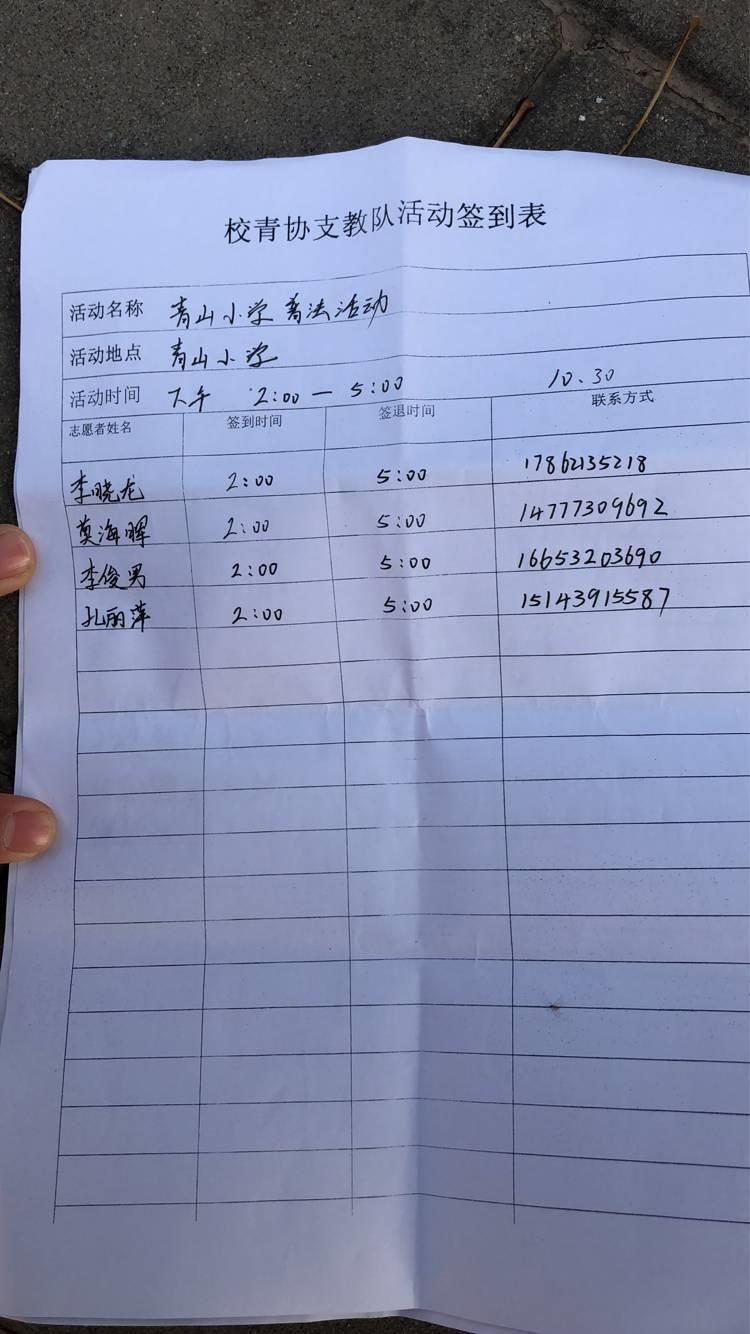 校青协支教队活动签到表
活动名称 青山小学普法活动
活动地点 青山小学
活动时间 下午 2:00 — 5:00 10.30
志愿者姓名 签到时间 签退时间 联系方式
李晓龙 2:00 5:00 17862135218
莫海晖 2:00 5:00 14777309692
李俊男 2:00 5:00 16653203690
孔丽萍 2:00 5:00 15143915587